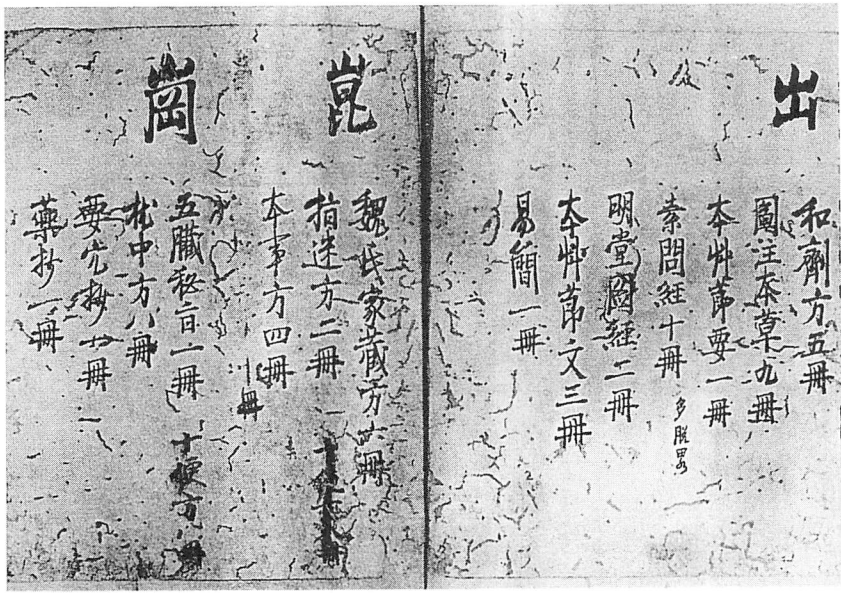 出
和劑方五冊
圖注本草九冊
本艸節要一冊
素問経十冊 多脱畧
明堂圖経二冊
本艸節文三冊
易簡一冊
崑
魏氏家蔵方六冊
指迷方二冊
本事方四冊
崗
五臓秘旨一冊 十便方八冊
中方八冊
要穴抄一冊
藥抄一冊